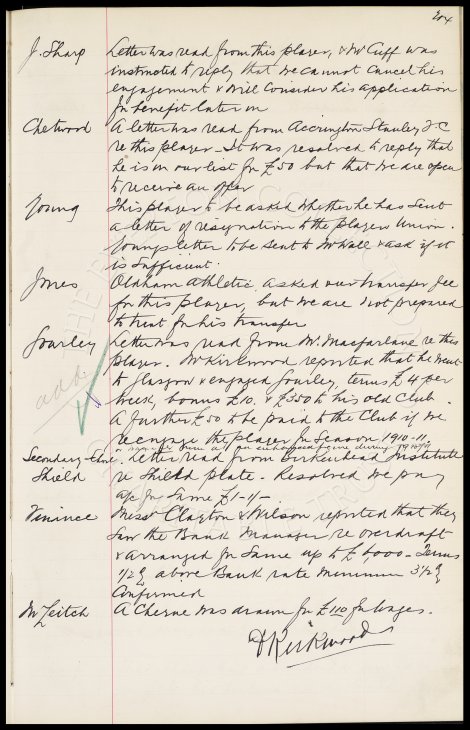 204
J. Sharp Letter was read from this player, & Mr Cuff was
instructed to reply that we cannot cancel his
engagement & will consider his application
for benefit later on
Chetwood A letter was read from Accrington Stanley FC
re this player. It was resolved to reply that
he is on our list for £50 but that we are open
to receive an offer
Young This player to be asked whether he has sent
a letter of resignation to the players Union.
Youngs letter to be sent to Mr Wall & ask if it
is sufficient.
Jones Oldham Athletic asked our transfer fee
for this player, but we are not prepared
to treat for his transfer
Gourley Letter was read from Mr. Macfarlane re this
player. Mr Kirkwood reported that he went
add to Glasgow & engaged Gourley, terms £4 per
week, bonus £10. & £350 to his old Club.
A further £50 to be paid to the Club if we
reengage the player for Season 1910-11.
Secondary Letter read from Birkenhead Institute
Shield re Shield plate. Resolved we pay
a/c for same £1-1/-
Finance Messrs Clayton & Wilson reported that they
saw the Bank Manager re overdraft
& arranged for same up to £6000 - Terms
1/2% above Bank rate minimum 3 1/2%
Confirmed
Mr Leitch A Cheque was drawn for £110 for wages.
D Kirkwood